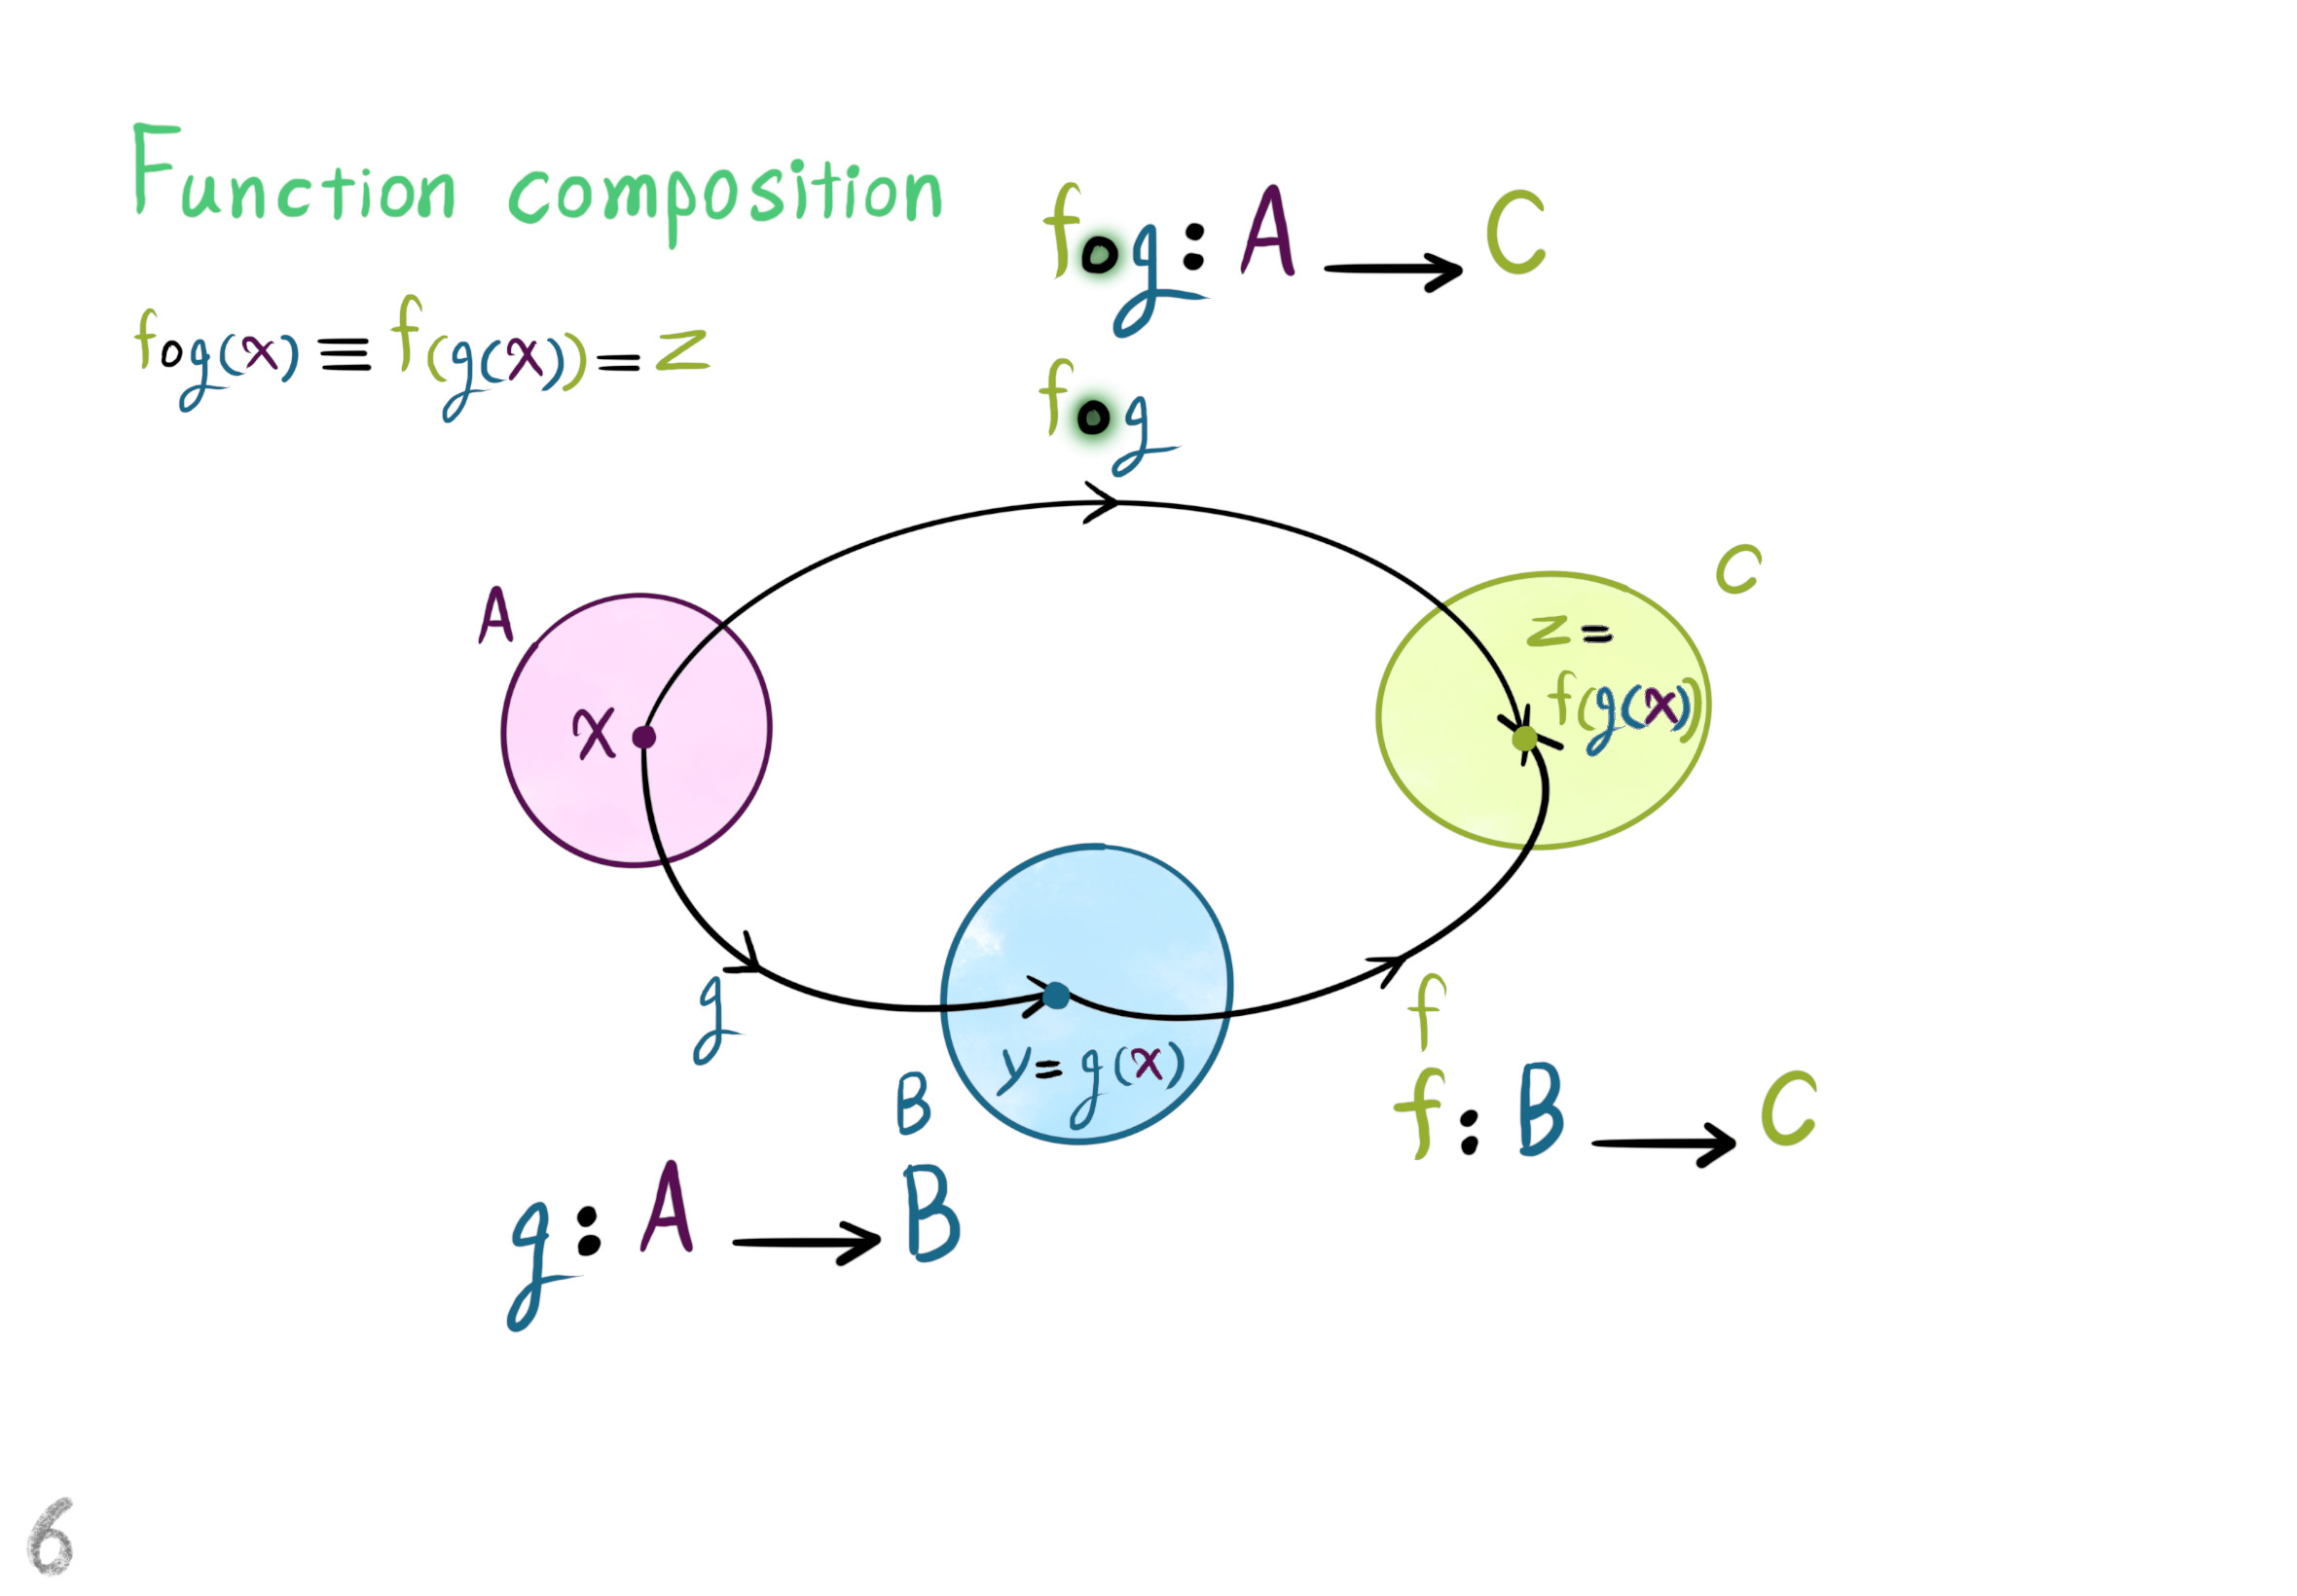 Function composition
f∘g: A → C
f∘g(x) ≡ f(g(x)) = z
f∘g
A
C
x
z =
f(g(x))
g
y = g(x)
B
f
f: B → C
g: A → B
6